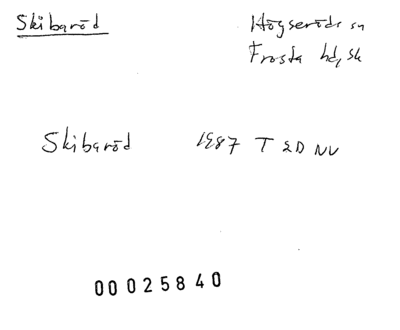 Skibaröd
Högseröds sn
Frosta hd, Sk
Skibaröd 1987 T 2D NV
00025840